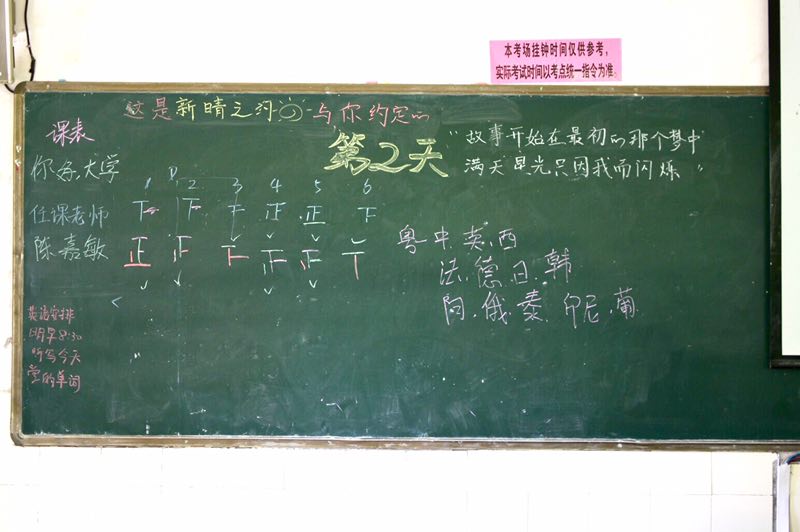 本考场挂钟时间仅供参考,
实际考试时间以考点统一指令为准。
这是新晴之约 与你约定的
第2天
"故事开始在最初的那个梦中
满天星光只因我而闪烁"
课表
你好,大学
1 2 3 4 5 6
任课老师 下 下 下 正 正 下
陈嘉敏 正 正 下 正 正 丅
粤.中.英.西
法.德.日.韩
阿.俄.泰.印尼.葡
英语安排
明早8:30
听写今天
堂的单词